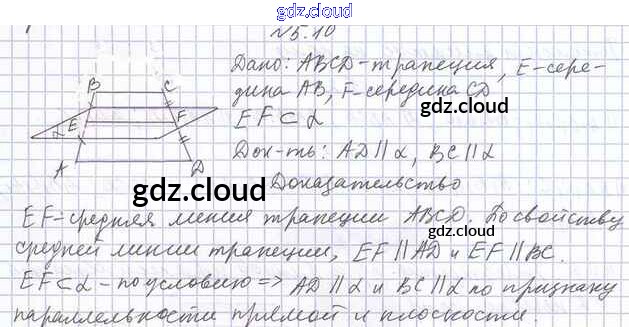 gdz.cloud
N 5.10
Дано: ABCD-трапеция, E-сере-
дина AB, F-середина CD
gdz.cloud
EF⊂α
Док-ть: AD∥α, BC∥α
gdz.cloud
Доказательство
B C
E F
α
A D
gdz.cloud
EF-средняя линия трапеции ABCD. По свойству
средней линии трапеции, EF∥AD и EF∥BC.
gdz.cloud
EF⊂α-по условию => AD∥α и BC∥α по признаку
параллельности прямой и плоскости.